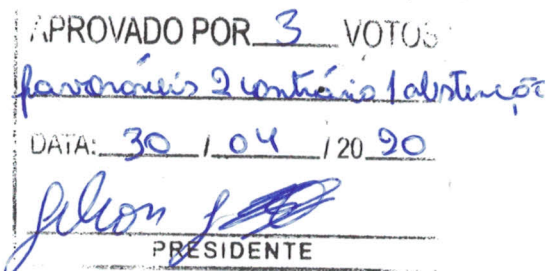 APROVADO POR 3 VOTOS
favoráveis 2 contrário 1 abstenção
DATA: 30 / 04 / 20 20
PRESIDENTE